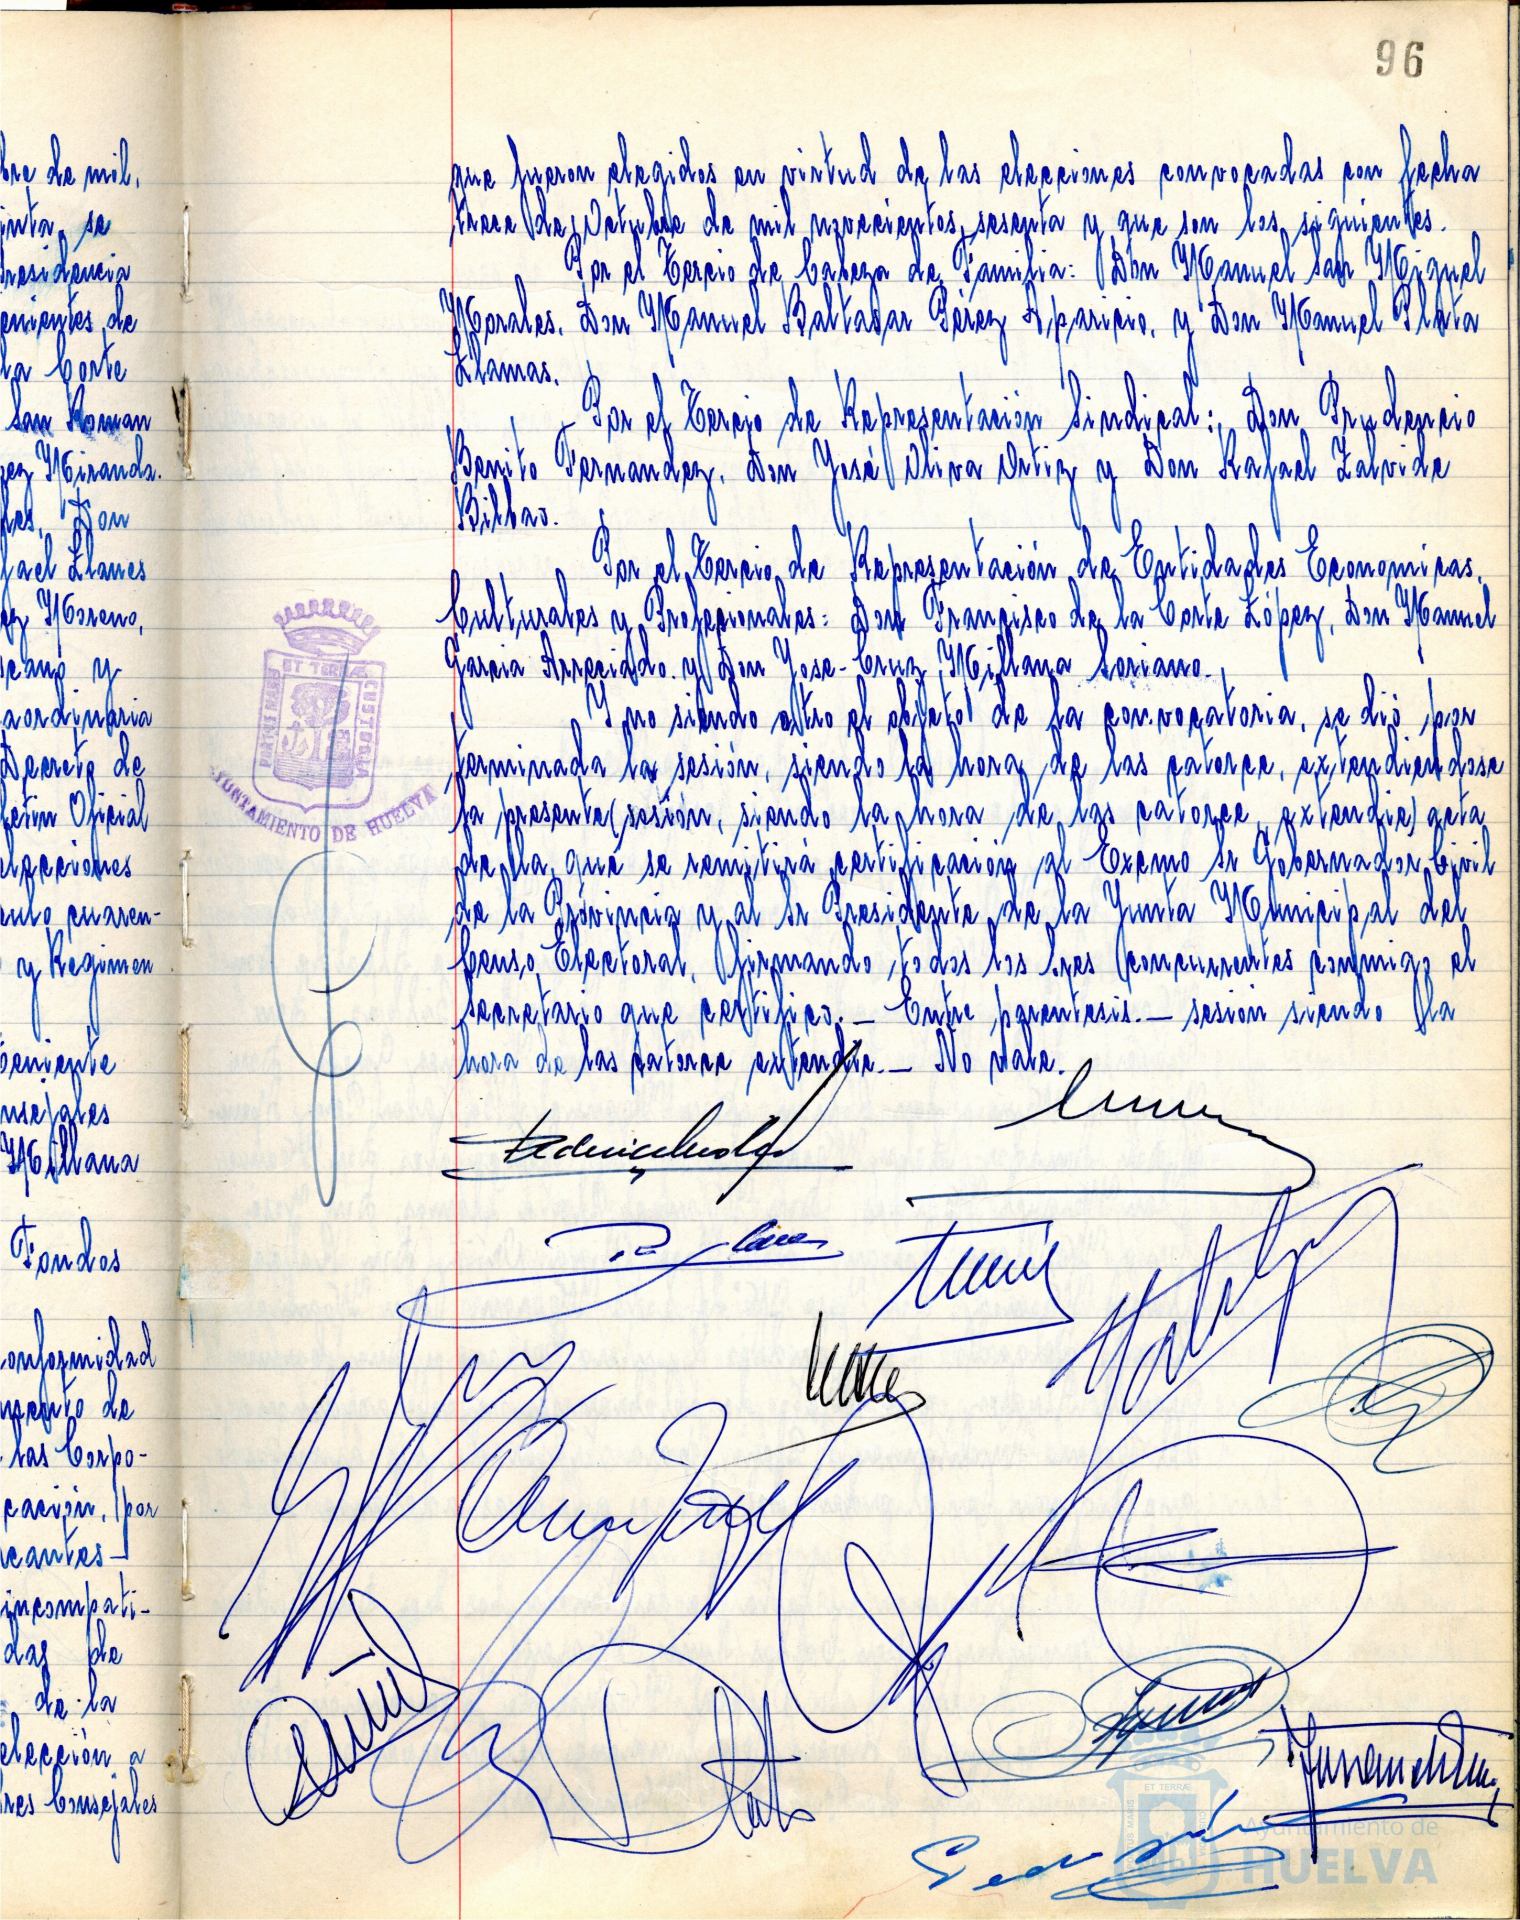 96
bre de mil,
se
residencia
enientes de
la Corte
San Roman
ez Miranda.
les, Don
fael Llanes
ez Moreno,
y
aordinaria
Decreto de
letin Oficial
elecciones
culo cuaren-
y Regimen
Teniente
nsejales
Millana
Fondos
onformidad
mento de
las Corpo-
cación, por
cantes-
incompati-
das de
de la
elección a
res Consejales
que fueron elegidos en virtud de las elecciones convocadas con fecha
trece de Octubre de mil novecientos sesenta y que son los siguientes.
Por el Tercio de Cabeza de Familia: Don Manuel San Miguel
Morales, Don Manuel Baltasar Pérez Aparicio, y Don Manuel Plata
Llamas.
Por el Tercio de Representación Sindical: Don Prudencio
Benito Fernandez, Don José Oliva Ortiz y Don Rafael Zalvide
Bilbao.
Por el Tercio de Representación de Entidades Economicas,
Culturales y Profesionales: Don Francisco de la Corte López, Don Manuel
Garcia Arreciado y Don Jose-Cruz Millana Soriano.
Y no siendo otro el objeto de la convocatoria, se dió por
terminada la sesión, siendo la hora de las catorce, extendiendose
la presente (sesión, siendo la hora de las catorce, extendie) acta
de la que se remitirá certificación al Excmo Sr Gobernador Civil
de la Provincia y al Sr Presidente de la Junta Municipal del
Censo Electoral, firmando todos los Sres concurrentes conmigo el
Secretario que certifico.- Entre parentesis.- sesión siendo la
hora de las catorce extendie.- No vale.
ET TERRAE
PORTUS MARIS
CUSTODIA
AYUNTAMIENTO DE HUELVA
ET TERRAE
Ayuntamiento de
HUELVA